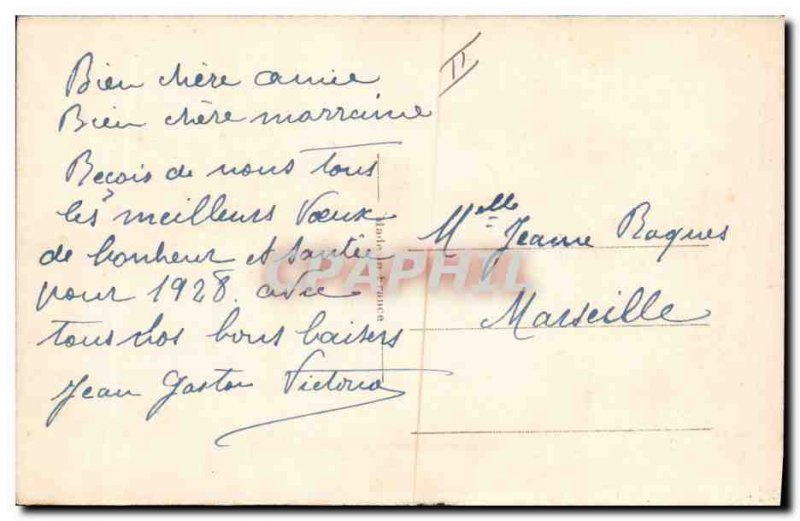 Bien chère amie
Bien chère marraine
Reçois de nous tous
les meilleurs Vœux
de bonheur et santée
pour 1928. avec
tous nos bons baisers
Jean Gaston Victoria
II
Made in France
Melle Jeanne Roques
Marseille
CPAPHIL